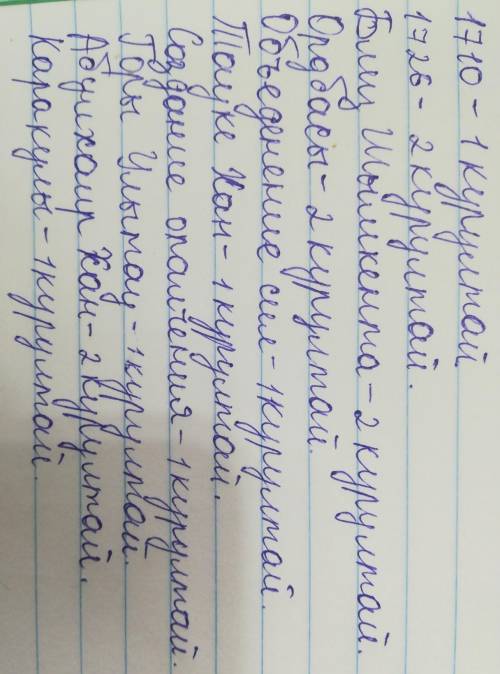 1710 - 1 курултай
1726 - 2 курултай.
Близ Шымкента - 2 курултай.
Ордабасы - 2 курултай.
Объеденение сил - 1 курултай.
Тауке Хан - 1 курултай.
Создание ополчения - 1 курултай.
Горы Улытау - 1 курултай.
Абулхаир Хан - 2 курултай.
Каракумы - 1 курултай.